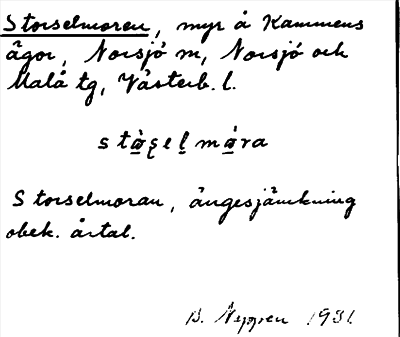 Storselmoran, myr å Kammens
ägor, Norsjö sn, Norsjö och
Malå tg, Västerb. l.
Storselmoran, ängesjämkning
obek. årtal.
B. 1931